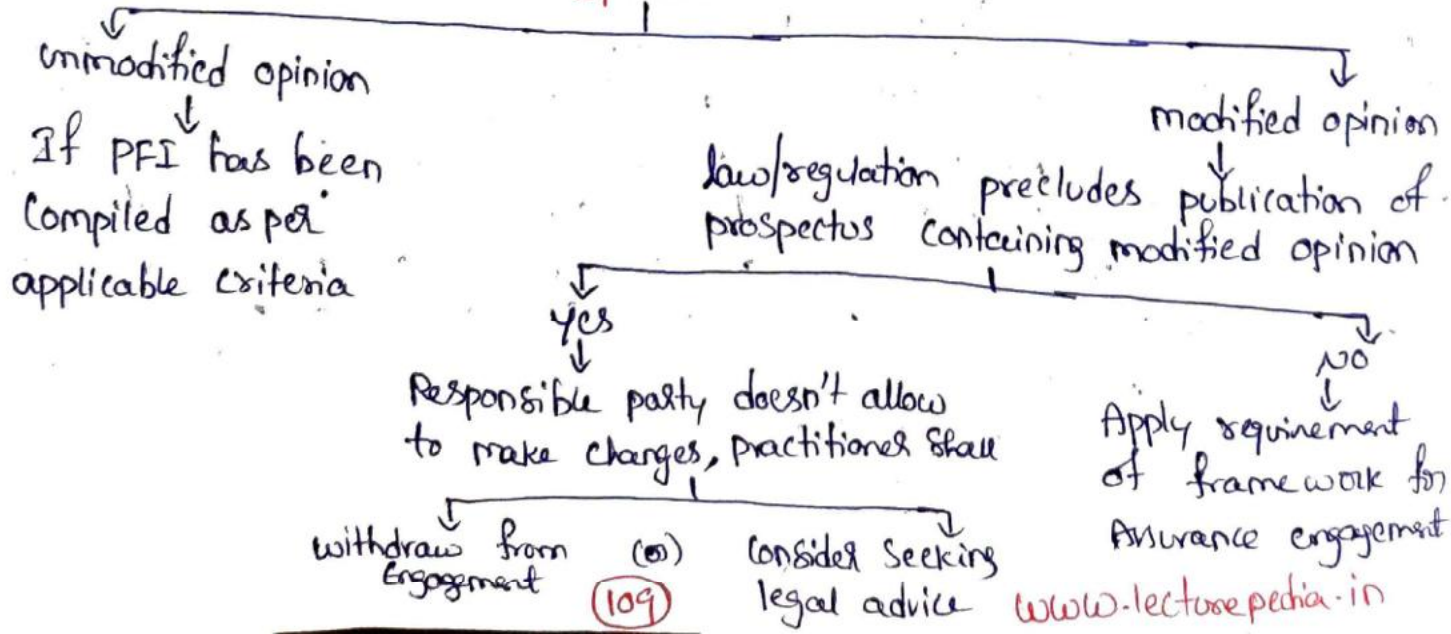 unmodified opinion
If PFI has been
Compiled as per
applicable criteria
modified opinion
law/regulation precludes publication of
prospectus containing modified opinion
yes
Responsible party doesn't allow
to make changes, practitioner shall
withdraw from
Engagement
(or)
consider seeking
legal advice
NO
Apply requirement
of framework for
Assurance engagement
109
www.lecturepedia.in